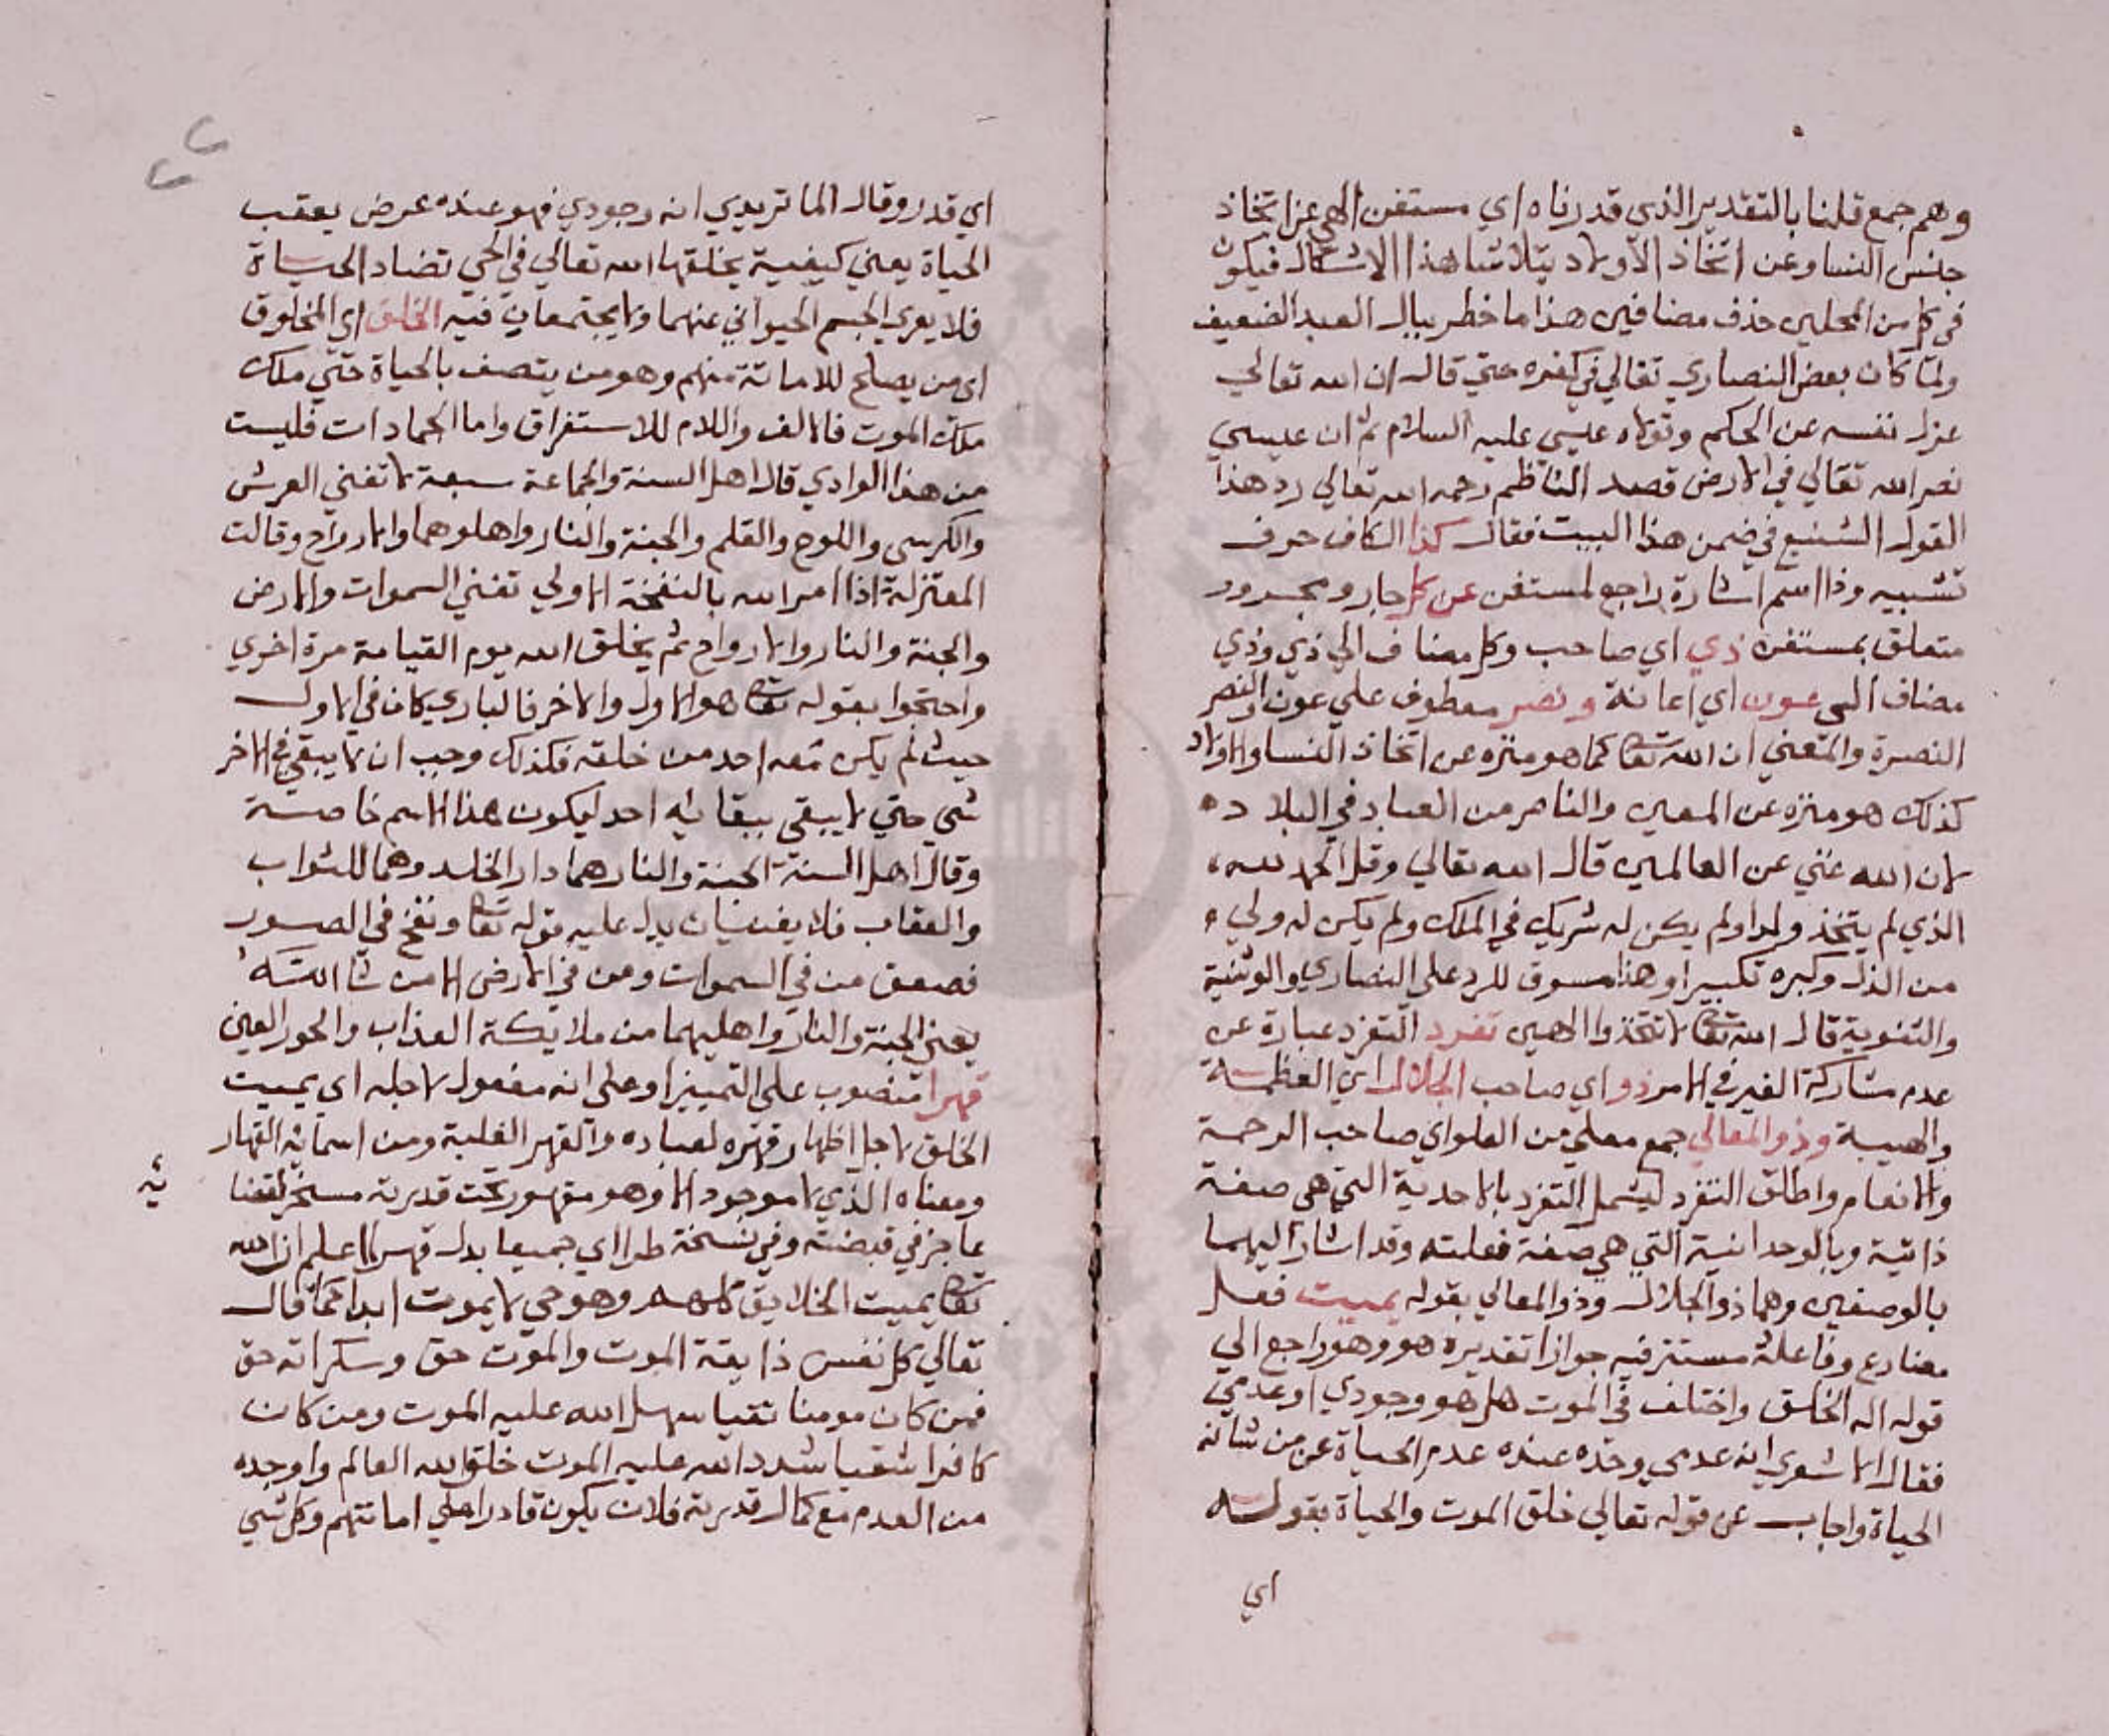 وهم جمع قلنا بالتقدير الذي قدرناه اي مستغن الهي عن اتخاذ
جنس النسا وعن اتخاذ الاولاد يتلاشا هذا الاشكال فيكون
في كل من المحلين حذف مضافين هذا ما خطر ببال العبد الضعيف
ولما كان بعض النصاري تغالي في كفره حتي قال ان الله تعالي
عزل نفسه عن الحكم وتولاه عيسي عليه السلام ثم ان عيسي
نصر الله تعالي في الارض قصد الناظم رحمه الله تعالي رد هذا
القول الشنيع في ضمن هذا البيت فقال كذا الكاف حرف
تشبيه وذا اسم اشارة راجع لمستغن عن كل جار ومجرور
متعلق بمستغن ذي اي صاحب وكل مضاف الي ذي وذي
مضاف الي عون اي اعانة ونصر معطوف علي عون والنصر
النصرة والمعني ان الله تعا كما هو منزه عن اتخاذ النسا والاولاد
كذلك هو منزه عن المعين والناصر من العباد في البلاد
لان الله غني عن العالمين قال الله تعالي وقل الحمد لله
الذي لم يتخذ ولدا ولم يكن له شريك في الملك ولم يكن له ولي
من الذل وكبره تكبيرا وهذا مسوق للرد علي النصاري والوثنية
والثنوية قال الله تعا لا تتخذوا الهين تفرد التفرد عبارة عن
عدم مشاركة الغير في الامر ذو اي صاحب الجلال اي العظمة
والهيبة وذو المعالي جمع معلي من العلو اي صاحب الرحمة
والانعام واطلق التفرد ليشمل التفرد بالاحدية التي هي صفة
ذاتية وبالوحدانية التي هي صفة فعليته وقد اشار اليهما
بالوصفين وهما ذو الجلال وذو المعالي بقوله يميت فعل
مضارع وفاعله مستتر فيه جوازا تقديره هو وهو راجع الي
قوله اله الخلق واختلف في الموت هل هو وجودي او عدمي
فقال الاشعري انه عدمي وحده عنده عدم الحياة عن من شانه
الحياة واجاب عن قوله تعالي خلق الموت والحياة بقوله
اي
اي قدر وقال الماتريدي انه وجودي فهو عنده عرض يعقب
الحياة يعني كيفية يخلقها الله تعالي في الحي تضاد الحياة
فلا يعري الجسم الحيواني عنهما ولا يجتمعان فيه الخلق اي المخلوق
اي من يصلح للاماتة منهم وهو من يتصف بالحياة حتي ملك
ملك الموت فالالف واللام للاستغراق واما الجمادات فليست
من هذا الوادي قال اهل السنة والجماعة سبعة لا تفني العرش
والكرسي واللوح والقلم والجنة والنار واهلوهما والارواح وقالت
المعتزلة اذا امر الله بالنفخة الاولي تفني السموات والارض
والجنة والنار والارواح ثم يخلق الله يوم القيامة مرة اخري
واحتجوا بقوله تعا هو الاول والاخر فالباري كان في الاول
حيث لم يكن معه احد من خلقه فكذلك وجب ان لا يبقي في الاخر
شي حتي لا يبقي ببقائه احد ليكون هذا الاسم خاصة
وقال اهل السنة الجنة والنار هما دار الخلد وهما للثواب
والعقاب فلا يفنيان يدل عليه قوله تعا ونفخ في الصور
فصعق من في السموات ومن في الارض الا من شا الله
يعني الجنة والنار واهليهما من ملايكة العذاب والحور العين
قهرا منصوب علي التمييز او علي انه مفعول لاجله اي يميت
الخلق لاجل اظهار قهره لعباده والقهر الغلبة ومن اسمائه القهار
ومعناه الذي لا موجود الا وهو مقهور تحت قدرته مسخر لقضا
ئه
عاجز في قبضته وفي نسخة طرا اي جميعا بدل قهرا اعلم ان الله
تعا يميت الخلايق كلهم وهو حي لا يموت ابدا كما قال
تعالي كل نفس ذايقة الموت والموت حق وسكراته حق
فمن كان مومنا تقيا سهل الله عليه الموت ومن كان
كافرا شقيا شدد الله عليه الموت خلق الله العالم واوجده
من العدم مع كمال قدرته فلان يكون قادرا علي اماتتهم وكل شي